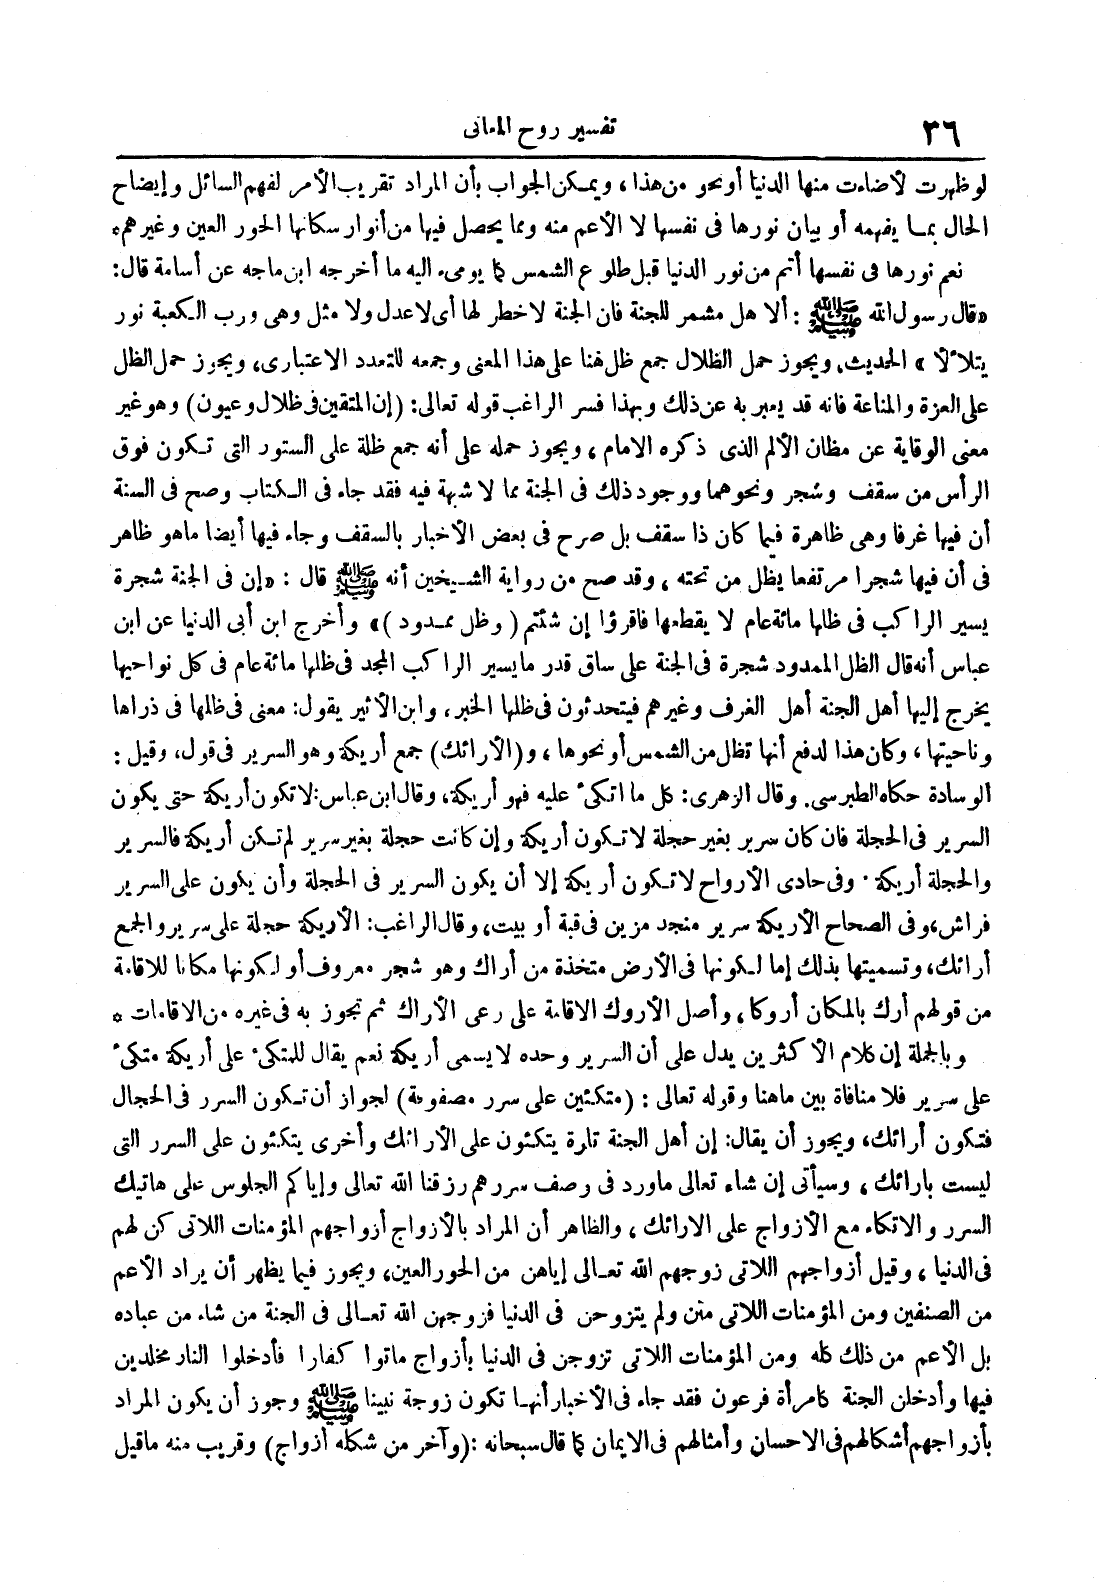 ٣٦
تفسير روح المعانى
لو ظهرت لأضاءت منها الدنيا أونحو من هذا، ويمكن الجواب بأن المراد تقريب الأمر لفهم السائل وإيضاح
الحال بما يفهمه أو بيان نورها فى نفسها لا الأعم منه ومما يحصل فيها من أنوار سكانها الحور العين وغيرهم *
نعم نورها فى نفسها أتم من نور الدنيا قبل طلوع الشمس كما يومىء اليه ما أخرجه ابن ماجه عن أسامة قال:
«قال رسول الله ﷺ : ألا هل مشمر للجنة فان الجنة لاخطر لها أى لاعدل ولا مثل وهى ورب الكعبة نور
يتلألأ» الحديث، ويجوز حمل الظلال جمع ظل هنا على هذا المعنى وجمعه للتعدد الاعتبارى، ويجوز حمل الظل
على العزة والمناعة فانه قد يعبر به عن ذلك وبهذا فسر الراغب قوله تعالى: (إن المتقين فى ظلال وعيون) وهو غير
معنى الوقاية عن مظان الألم الذى ذكره الامام، ويجوز حمله على أنه جمع ظلة على الستور التى تكون فوق
الرأس من سقف وشجر ونحوهما ووجود ذلك فى الجنة مما لا شبهة فيه فقد جاء فى الكتاب وصح فى السنة
أن فيها غرفا وهى ظاهرة فيما كان ذا سقف بل صرح فى بعض الأخبار بالسقف وجاء فيها أيضا ماهو ظاهر
فى أن فيها شجرا مرتفعا يظل من تحته، وقد صح من رواية الشيخين أنه ﷺ قال : «إن فى الجنة شجرة
يسير الراكب فى ظلها مائة عام لا يقطعها فاقرؤا إن شئتم (وظل ممدود)» وأخرج ابن أبى الدنيا عن ابن
عباس أنه قال الظل الممدود شجرة فى الجنة على ساق قدر ما يسير الراكب المجد فى ظلها مائة عام فى كل نواحيها
يخرج إليها أهل الجنة أهل الغرف وغيرهم فيتحدثون فى ظلها الخبر، وابن الأثير يقول: معنى فى ظلها فى ذراها
وناحيتها، وكان هذا لدفع أنها تظل من الشمس أو نحوها، و(الأرائك) جمع أريكة وهو السرير فى قول، وقيل :
الوسادة حكاه الطبرسى. وقال الزهرى: كل ما اتكئ عليه فهو أريكة، وقال ابن عباس: لا تكون أريكة حتى يكون
السرير فى الحجلة فان كان سرير بغير حجلة لا تكون أريكة وإن كانت حجلة بغير سرير لم تكن أريكة فالسرير
والحجلة أريكة. وفى حادى الأرواح لا تكون أريكة إلا أن يكون السرير فى الحجلة وأن يكون على السرير
فراش، وفى الصحاح الأريكة سرير منجد مزين فى قبة أو بيت، وقال الراغب: الأريكة حجلة على سرير والجمع
أرائك، وتسميتها بذلك إما لكونها فى الأرض متخذة من أراك وهو شجر معروف أو لكونها مكانا للاقامة
من قولهم أرك بالمكان أروكا، وأصل الأروك الاقامة على رعى الأراك ثم تجوز به فى غيره من الاقامات *
وبالجملة إن كلام الأكثرين يدل على أن السرير وحده لا يسمى أريكة نعم يقال للمتكئ على أريكة متكئ
على سرير فلا منافاة بين ماهنا وقوله تعالى : (متكئين على سرر مصفوفة) لجواز أن تكون السرر فى الحجال
فتكون أرائك، ويجوز أن يقال: إن أهل الجنة تارة يتكئون على الأرائك وأخرى يتكئون على السرر التى
ليست بارائك، وسيأتى إن شاء تعالى ماورد فى وصف سررهم رزقنا الله تعالى وإياكم الجلوس على هاتيك
السرر والاتكاء مع الأزواج على الارائك، والظاهر أن المراد بالأزواج أزواجهم المؤمنات اللاتى كن لهم
فى الدنيا، وقيل أزواجهم اللاتى زوجهم الله تعالى إياهن من الحور العين، ويجوز فيما يظهر أن يراد الأعم
من الصنفين ومن المؤمنات اللاتى متن ولم يتزوجن فى الدنيا فزوجهن الله تعالى فى الجنة من شاء من عباده
بل الأعم من ذلك كله ومن المؤمنات اللاتى تزوجن فى الدنيا بأزواج ماتوا كفارا فأدخلوا النار مخلدين
فيها وأدخلن الجنة كامرأة فرعون فقد جاء فى الأخبار أنها تكون زوجة نبينا ﷺ وجوز أن يكون المراد
بأزواجهم أشكالهم فى الاحسان وأمثالهم فى الايمان كما قال سبحانه :(وآخر من شكله أزواج) وقريب منه ماقيل